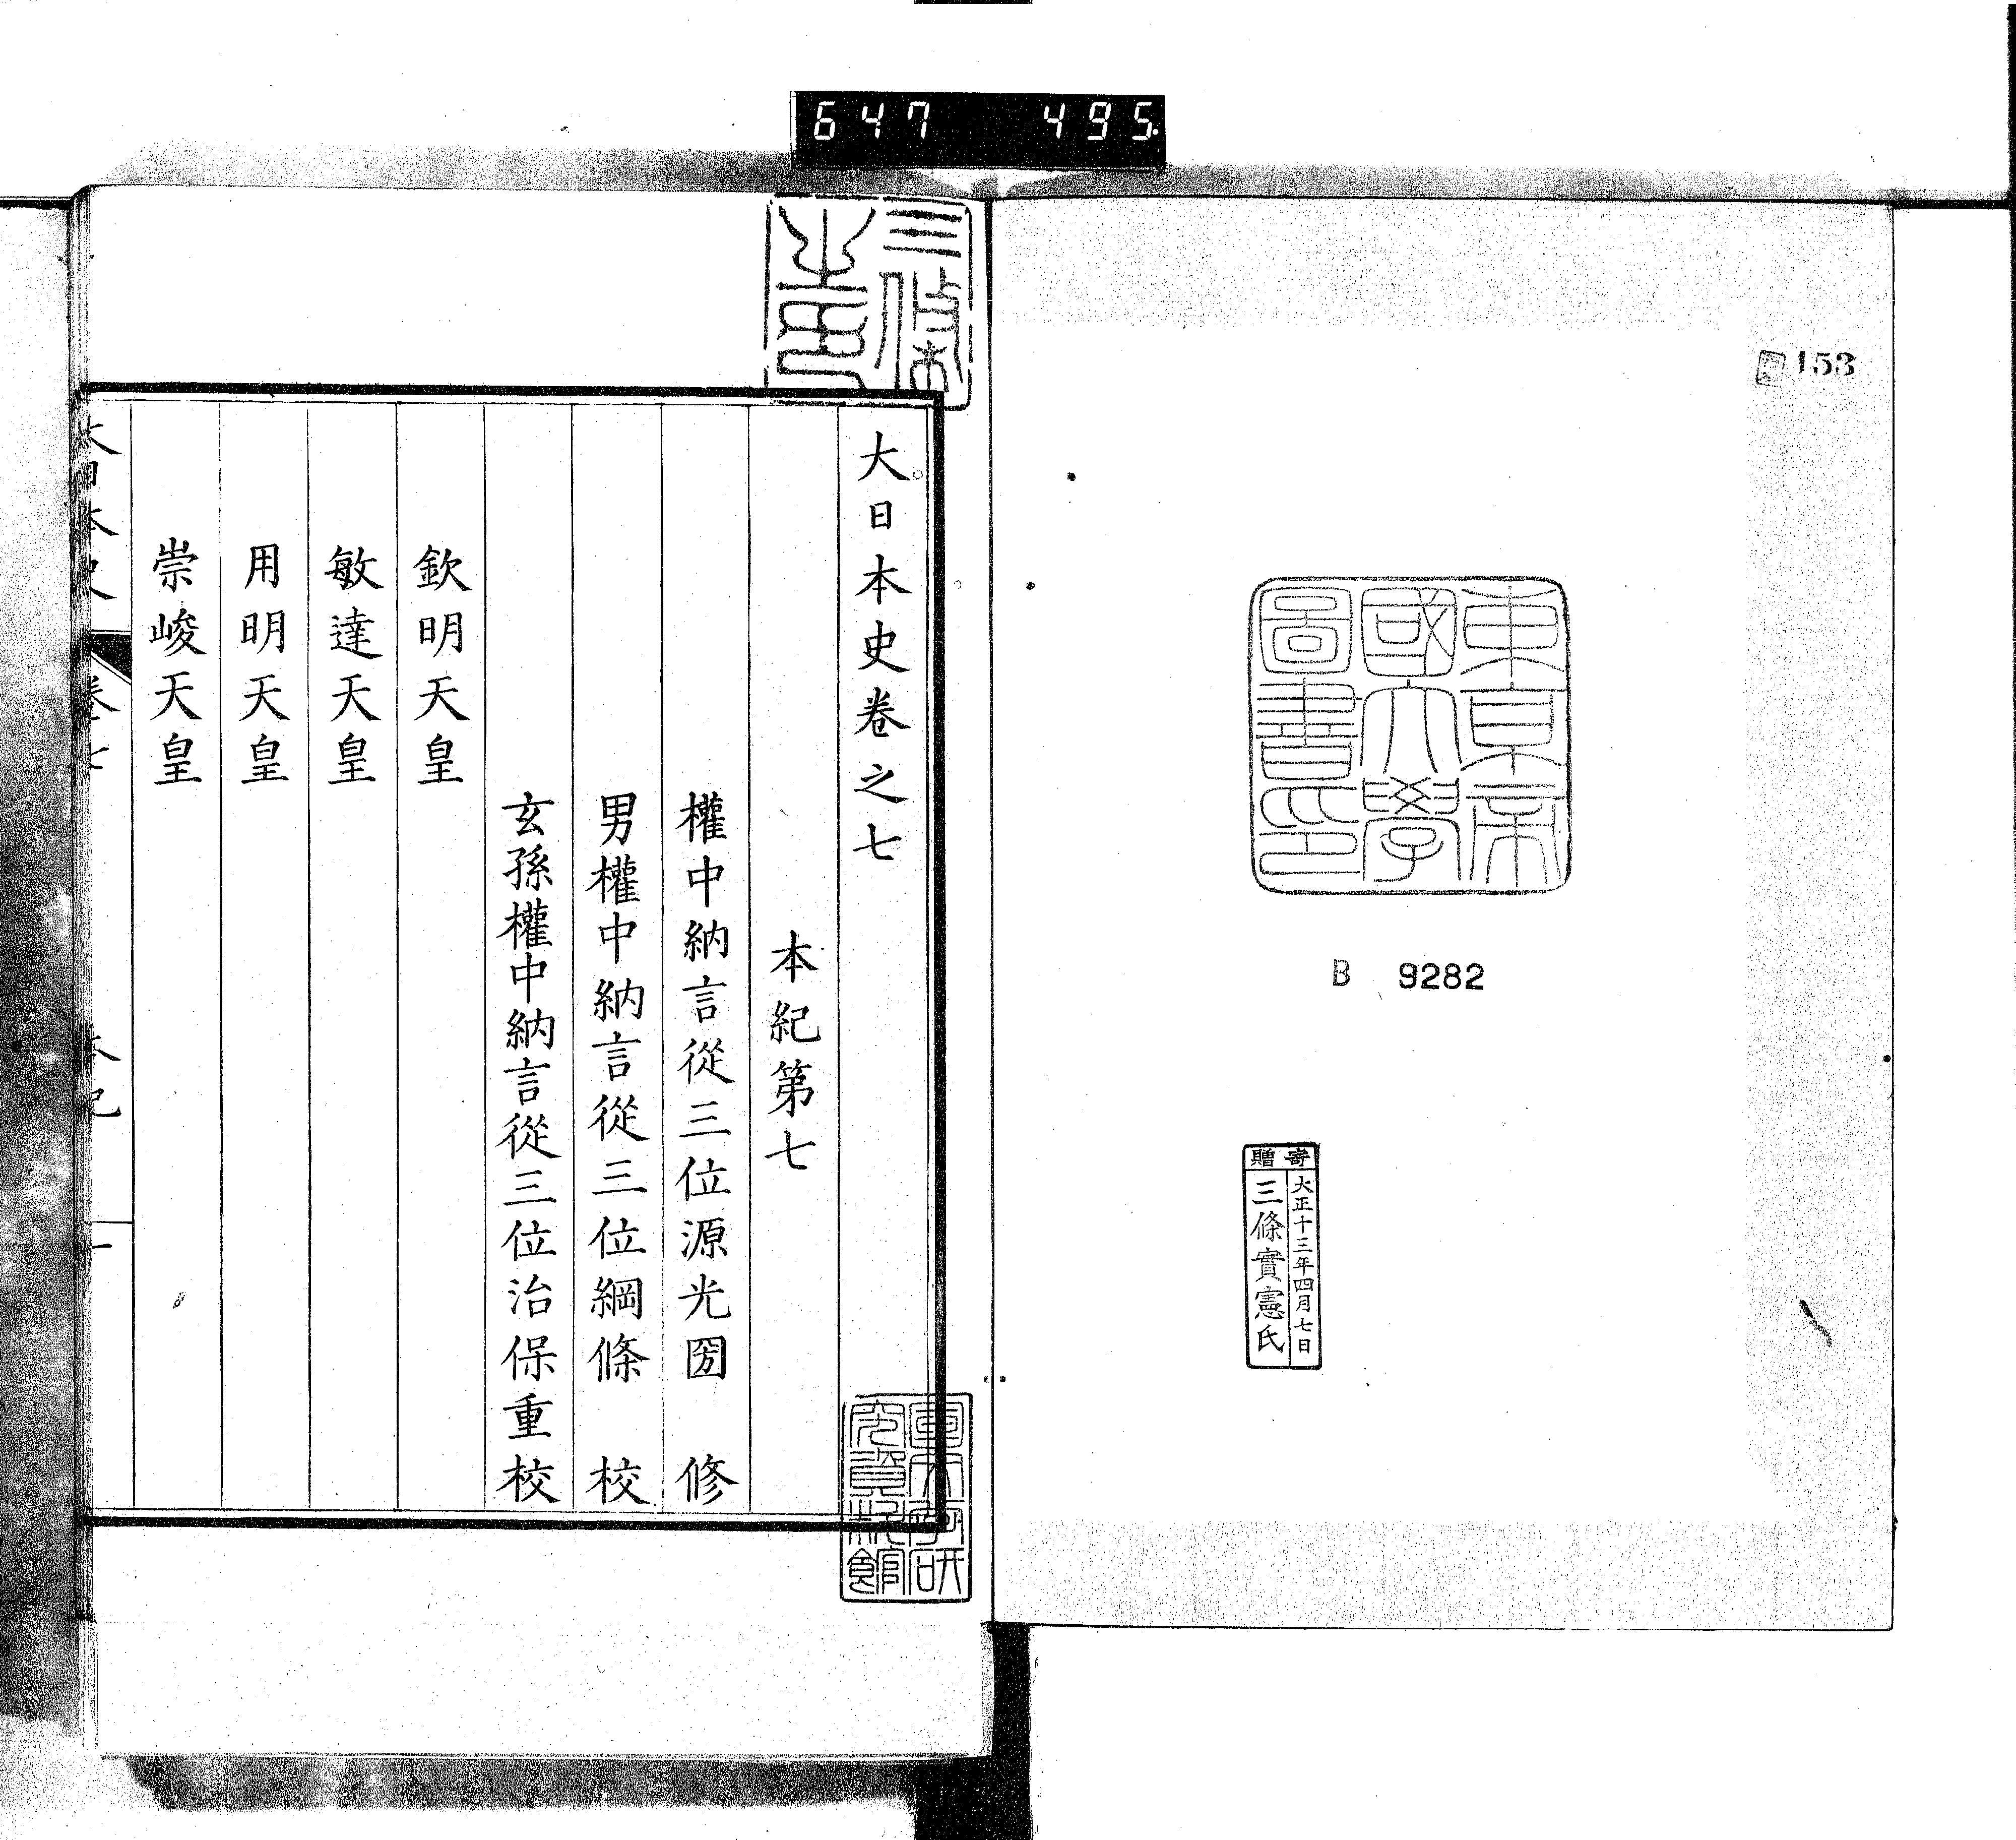 647 495
153
東京帝
國大學
圖書印
B 9282
寄贈
大正十三年四月七日
三條實憲氏
三條
大日本史卷之七
本紀第七
權中納言從三位源光圀 修
男權中納言從三位綱條 校
玄孫權中納言從三位治保重校
欽明天皇
敏達天皇
用明天皇
崇峻天皇
大日本史 卷七 本紀 一